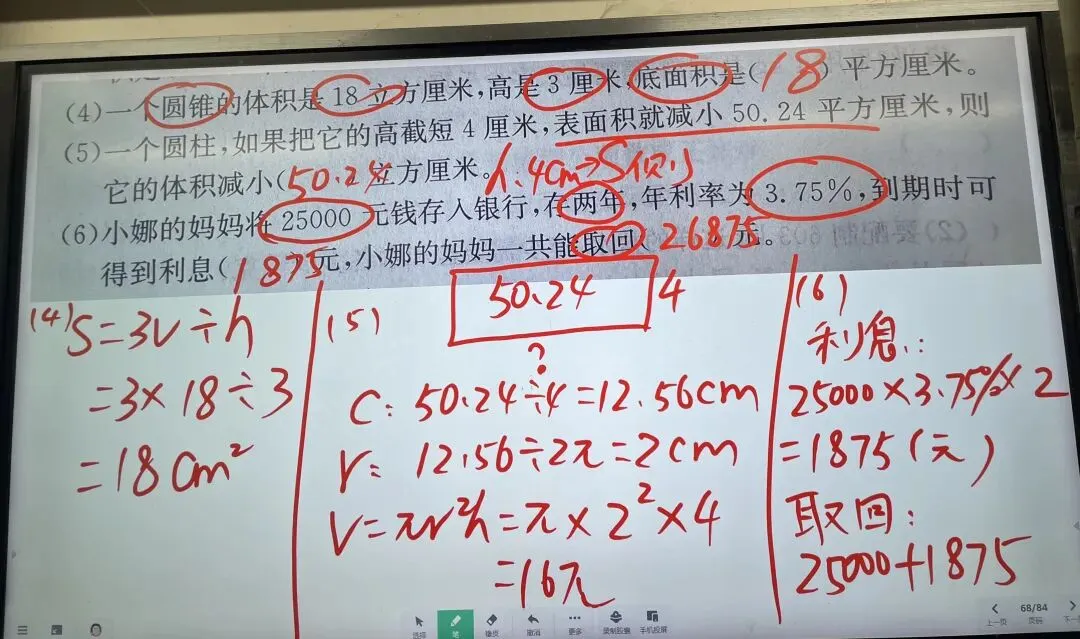 (4)一个圆锥的体积是18立方厘米,高是3厘米,底面积是(18)平方厘米。
(5)一个圆柱,如果把它的高截短4厘米,表面积就减小50.24平方厘米,则
它的体积减小(50.24立方厘米。
h.4cm→S侧少
(6)小娜的妈妈将25000元钱存入银行,存两年,年利率为3.75%,到期时可
得到利息(1875元,小娜的妈妈一共能取回(26875元。
(4) S=3V÷h
=3×18÷3
=18cm²
(5)
50.24 4
?
C: 50.24÷4=12.56cm
r: 12.56÷2π=2cm
V=πr²h=π×2²×4
=16π
(6)
利息:
25000×3.75%×2
=1875(元)
取回:
25000+1875
选择 笔 橡皮 撤消 更多 录制胶囊 手机投屏
上一页 68/84 页码 下一